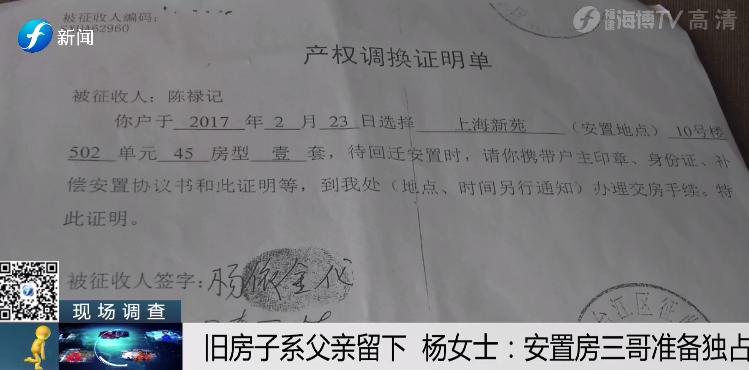 被征收人编码:
新闻
福建 海博TV 高清
产权调换证明单
被征收人：陈禄记
你户于 2017 年 2 月 23 日选择 上海新苑 （安置地点）10号楼
502 单元 45 房型 壹 套，待回迁安置时，请你携带户主印章、身份证、补
偿安置协议书和此证明等，到我处（地点、时间另行通知）办理交房手续。特
此证明。
被征收人签字：杨依金代
台江区征
现场调查
旧房子系父亲留下 杨女士：安置房三哥准备独占